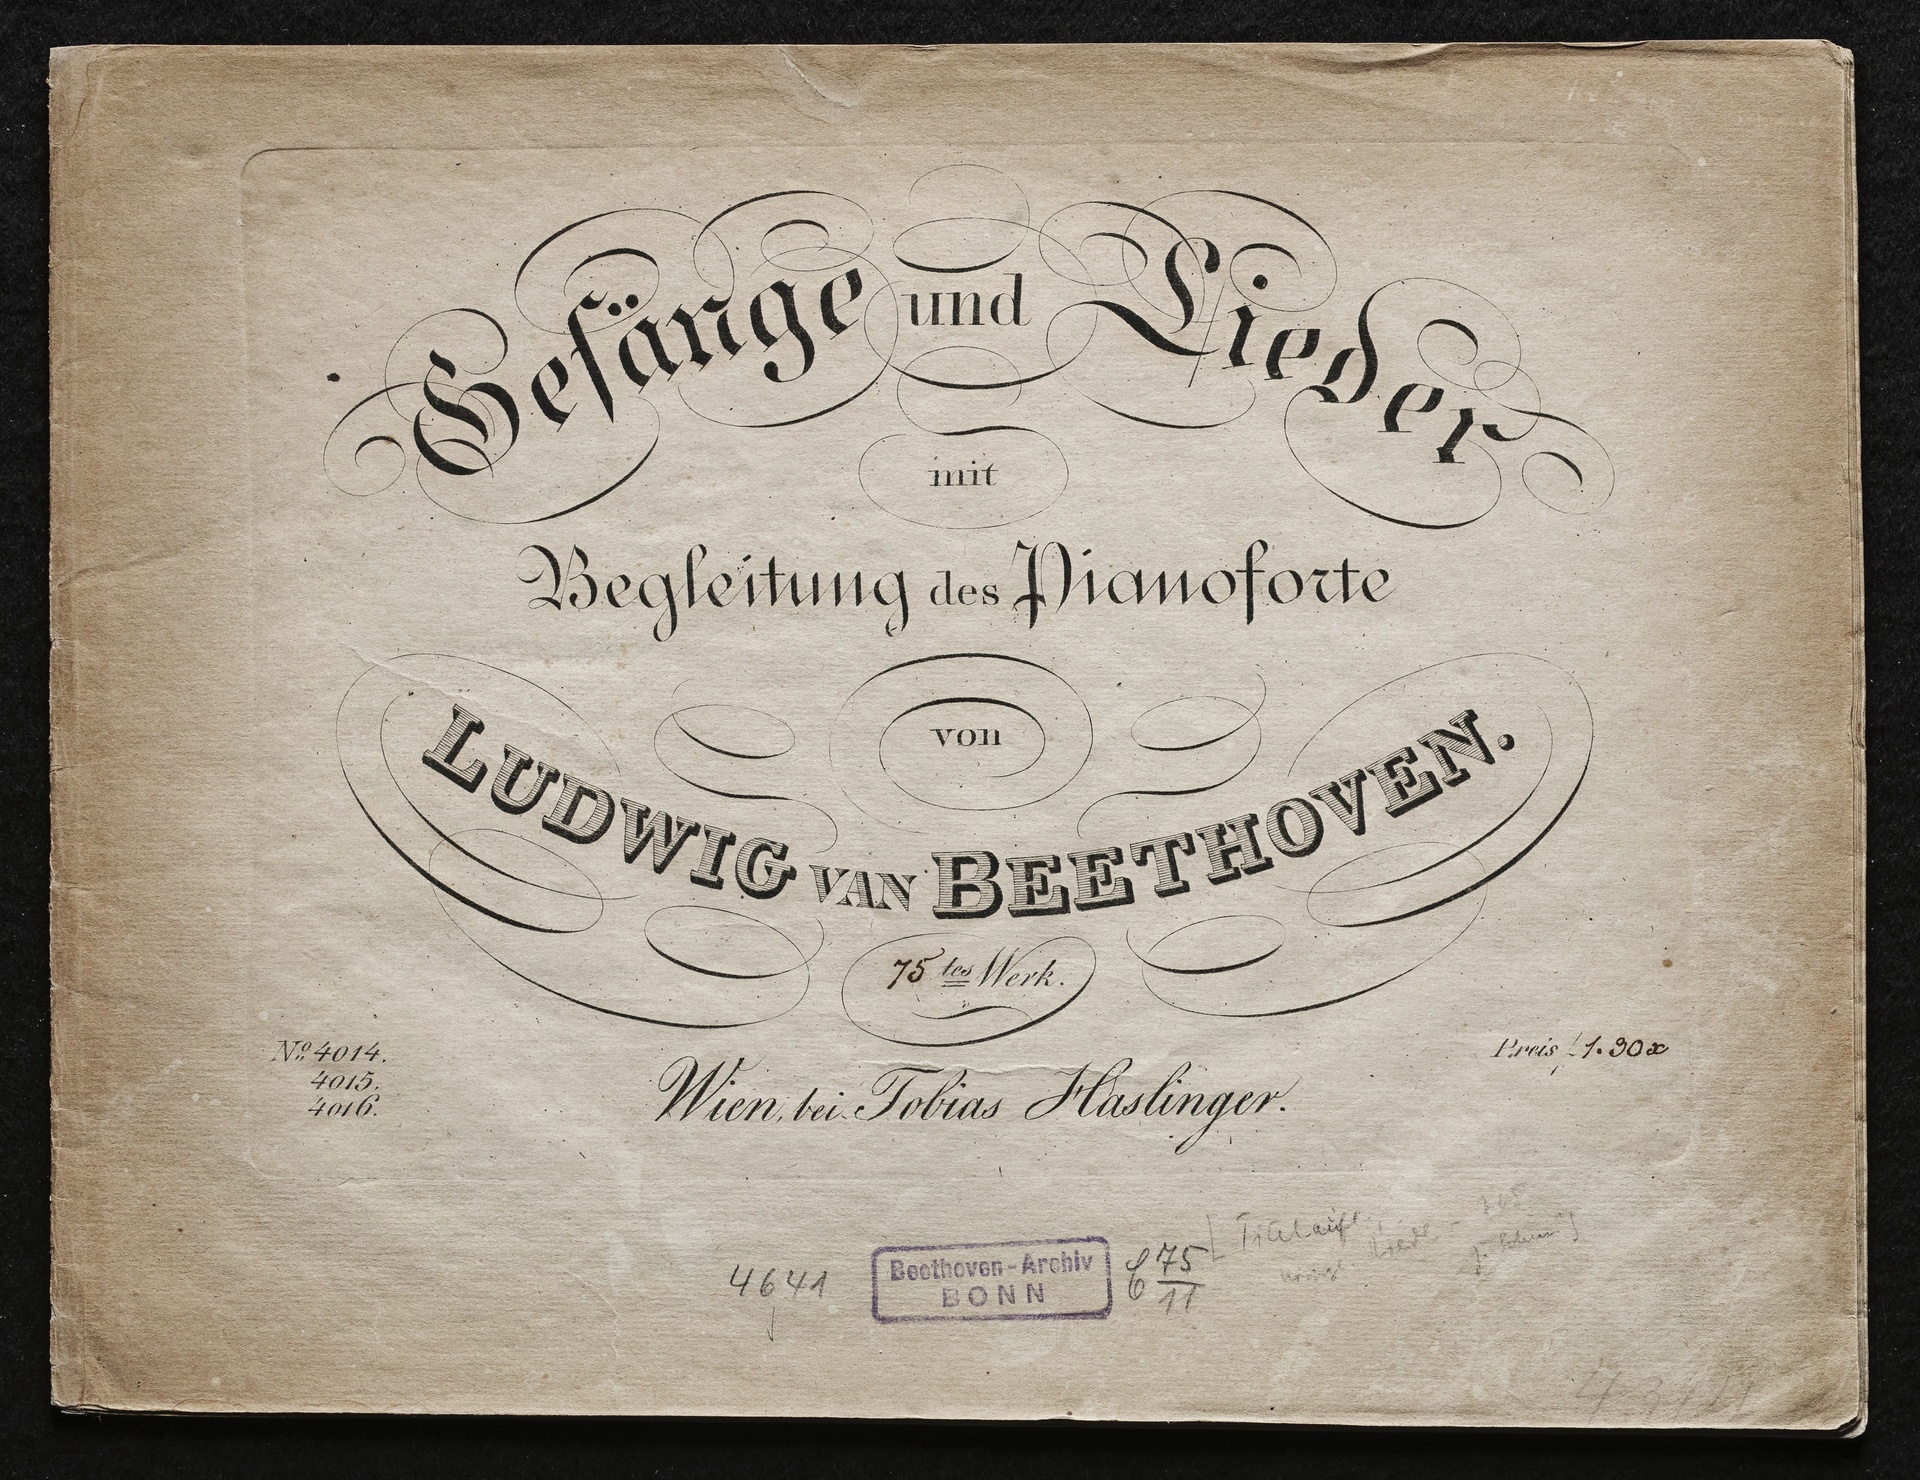 Gesänge und Lieder
mit
Begleitung des Pianoforte
von
LUDWIG VAN BEETHOVEN.
75 tes Werk.
No. 4014.
4015.
4016.
Preis f 1. 30 x
Wien, bei Tobias Haslinger.
4641
Beethoven-Archiv
BONN
C 75
11